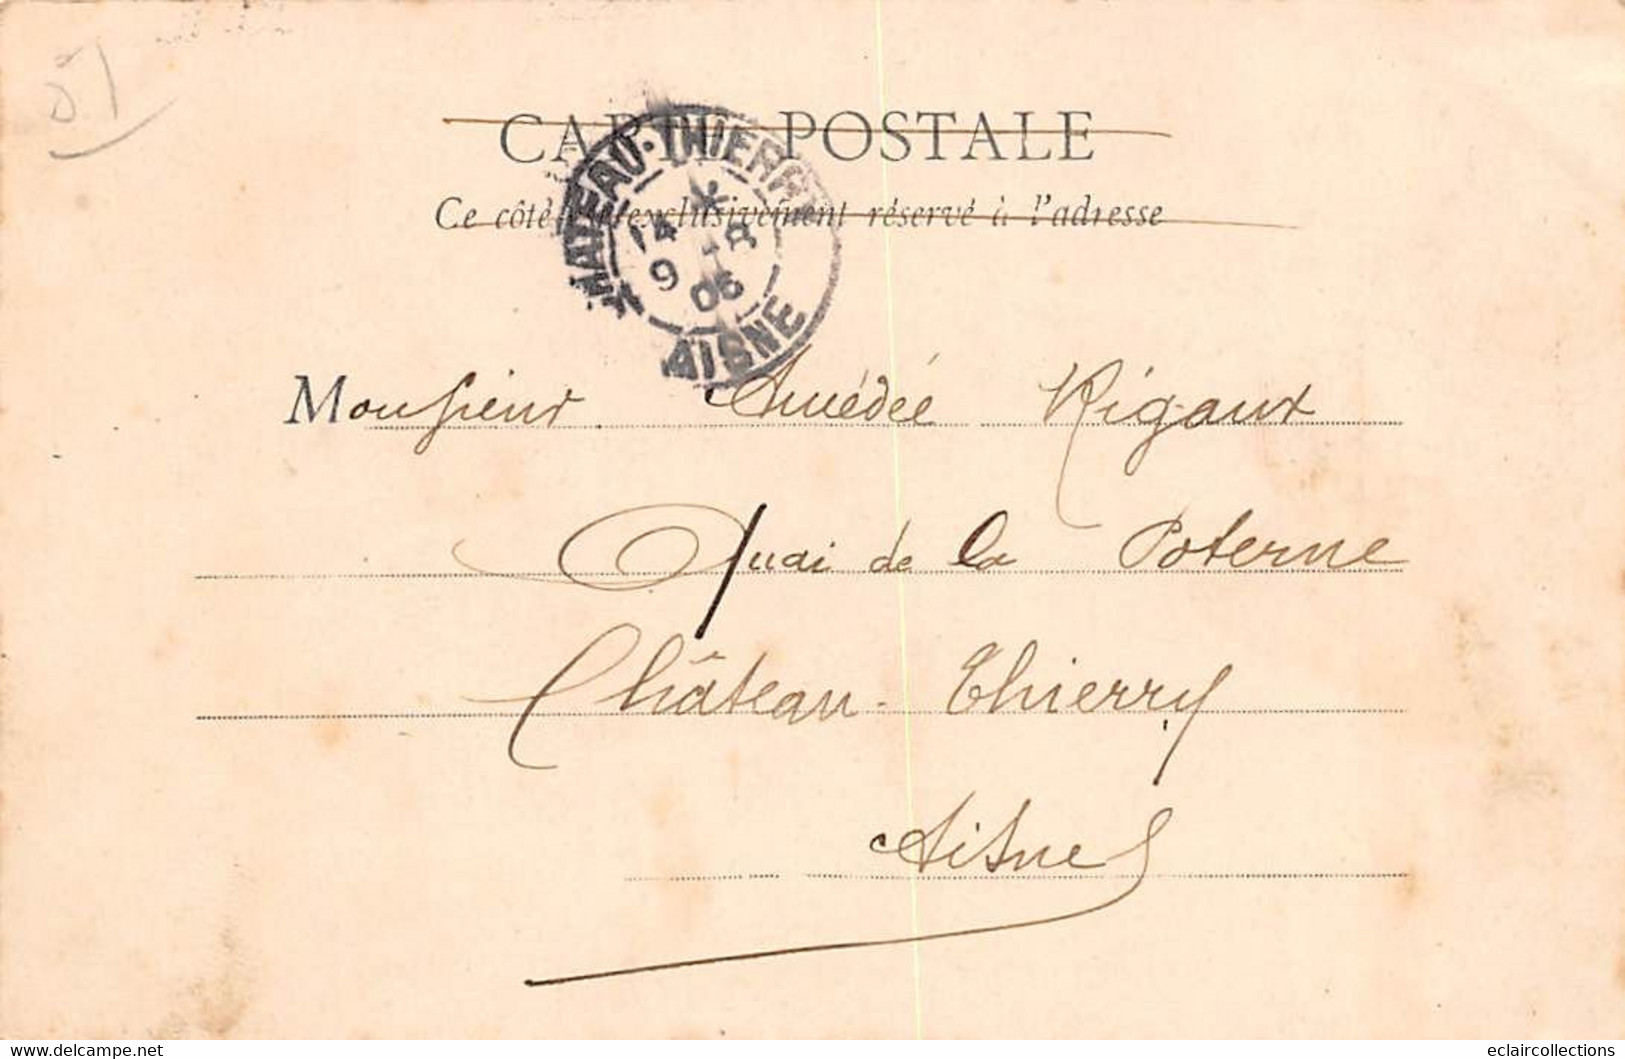 51
CARTE POSTALE
Ce côté est exclusivement réservé à l'adresse
CHATEAU-THIERRY
14 9 -8 05
AISNE
Monsieur Amédée Rigaux
Quai de la Poterne
Château-Thierry
Aisne
www.delcampe.net
eclaircollections